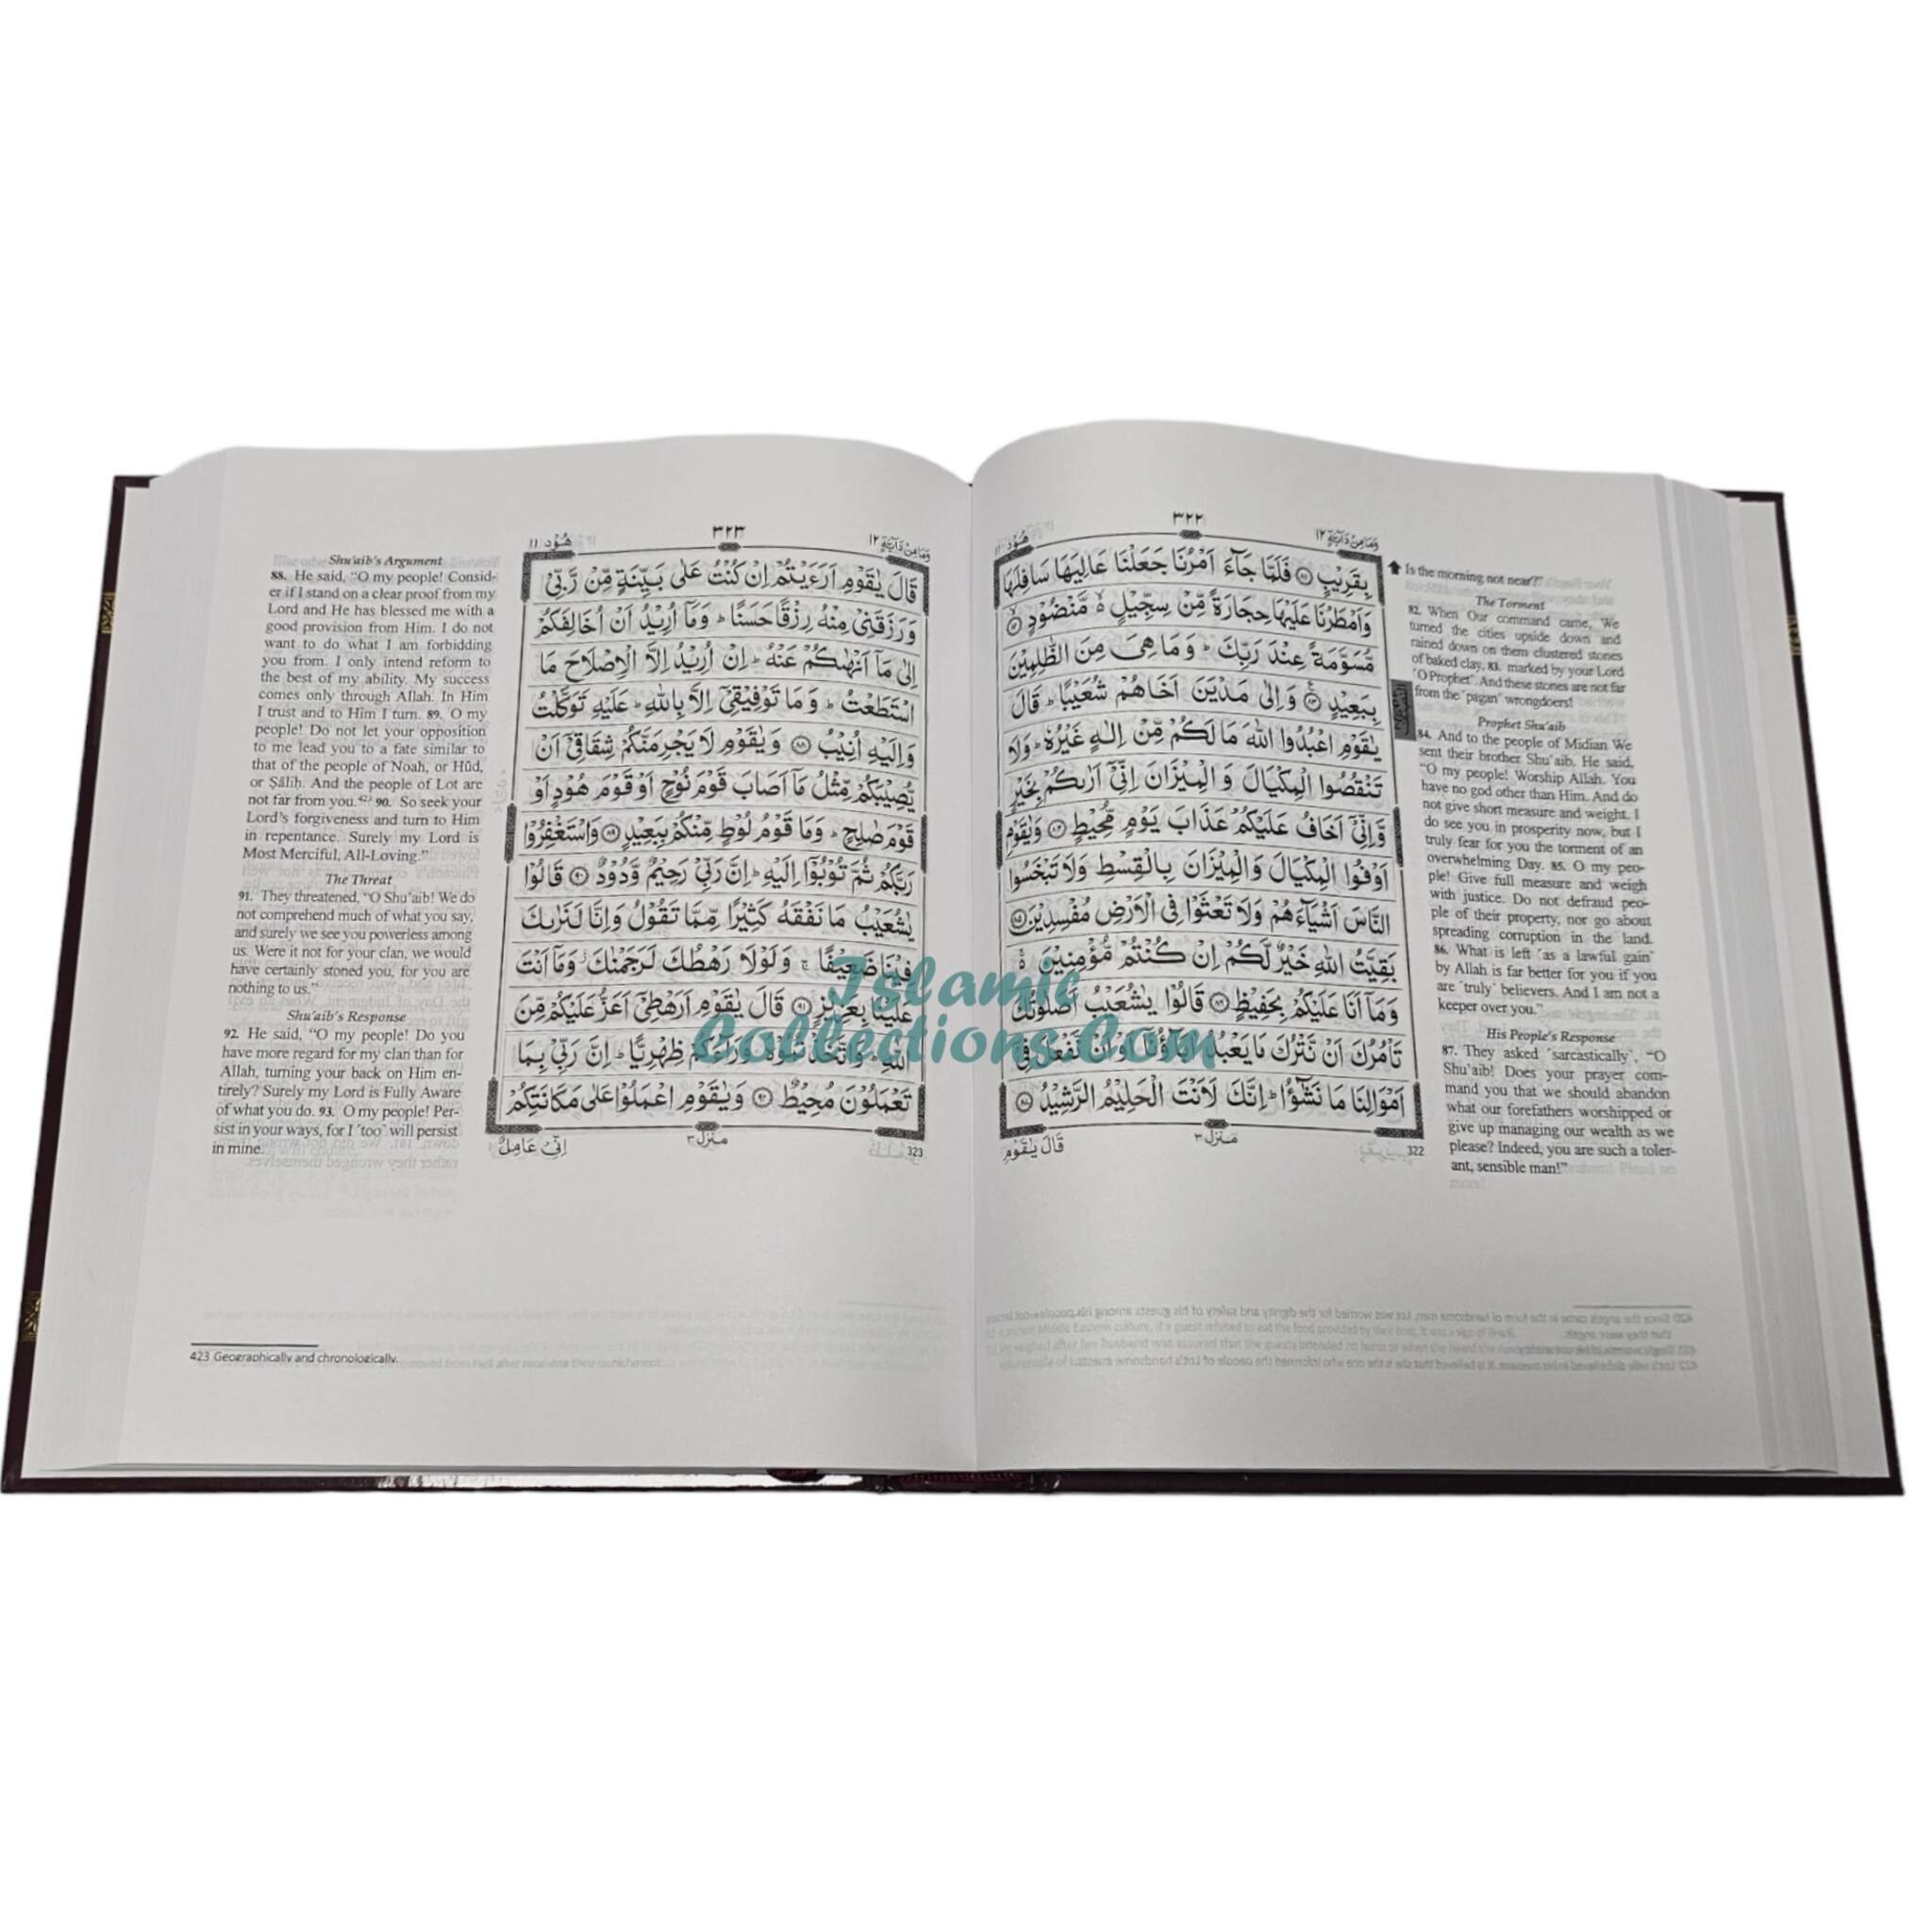 وَمَا مِنْ دَآبَّةٍ ١٢
٣٢٢
هُوْد ١١
بِقَرِيْبٍ ﴿٨١﴾ فَلَمَّا جَآءَ اَمْرُنَا جَعَلْنَا عَالِيَهَا سَافِلَهَا
وَاَمْطَرْنَا عَلَيْهَا حِجَارَةً مِّنْ سِجِّيْلٍ ۙ مَّنْضُوْدٍ ﴿٨٢﴾
مُّسَوَّمَةً عِنْدَ رَبِّكَ ؕ وَمَا هِىَ مِنَ الظّٰلِمِيْنَ
بِبَعِيْدٍ ﴿٨٣﴾ وَاِلٰى مَدْيَنَ اَخَاهُمْ شُعَيْبًا ؕ قَالَ
يٰقَوْمِ اعْبُدُوا اللّٰهَ مَا لَكُمْ مِّنْ اِلٰهٍ غَيْرُهٗ ؕ وَلَا
تَنْقُصُوا الْمِكْيَالَ وَالْمِيْزَانَ اِنِّىْٓ اَرٰىكُمْ بِخَيْرٍ
وَّاِنِّىْٓ اَخَافُ عَلَيْكُمْ عَذَابَ يَوْمٍ مُّحِيْطٍ ﴿٨٤﴾ وَيٰقَوْمِ
اَوْفُوا الْمِكْيَالَ وَالْمِيْزَانَ بِالْقِسْطِ وَلَا تَبْخَسُوا
النَّاسَ اَشْيَآءَهُمْ وَلَا تَعْثَوْا فِى الْاَرْضِ مُفْسِدِيْنَ ﴿٨٥﴾
بَقِيَّتُ اللّٰهِ خَيْرٌ لَّكُمْ اِنْ كُنْتُمْ مُّؤْمِنِيْنَ ۚ
وَمَآ اَنَا عَلَيْكُمْ بِحَفِيْظٍ ﴿٨٦﴾ قَالُوْا يٰشُعَيْبُ اَصَلٰوتُكَ
تَاْمُرُكَ اَنْ نَّتْرُكَ مَا يَعْبُدُ اٰبَآؤُنَآ اَوْ اَنْ نَّفْعَلَ فِىْٓ
اَمْوَالِنَا مَا نَشٰٓؤُا ؕ اِنَّكَ لَاَنْتَ الْحَلِيْمُ الرَّشِيْدُ ﴿٨٧﴾
322
مَنْزِل ٣
قَالَ يٰقَوْمِ
Is the morning not near?"
The Torment
82. When Our command came, We
turned the cities upside down and
rained down on them clustered stones
of baked clay, 83. marked by your Lord
˹O Prophet˺. And these stones are not far
from the ˹pagan˺ wrongdoers!
Prophet Shu'aib
84. And to the people of Midian We
sent their brother Shu'aib. He said,
"O my people! Worship Allah. You
have no god other than Him. And do
not give short measure and weight. I
do see you in prosperity now, but I
truly fear for you the torment of an
overwhelming Day. 85. O my peo-
ple! Give full measure and weigh
with justice. Do not defraud peo-
ple of their property, nor go about
spreading corruption in the land.
86. What is left ˹as a lawful gain˺
by Allah is far better for you if you
are ˹truly˺ believers. And I am not a
keeper over you."
His People's Response
87. They asked ˹sarcastically˺, "O
Shu'aib! Does your prayer com-
mand you that we should abandon
what our forefathers worshipped or
give up managing our wealth as we
please? Indeed, you are such a toler-
ant, sensible man!"
وَمَا مِنْ دَآبَّةٍ ١٢
٣٢٣
هُوْد ١١
قَالَ يٰقَوْمِ اَرَءَيْتُمْ اِنْ كُنْتُ عَلٰى بَيِّنَةٍ مِّنْ رَّبِّىْ
وَرَزَقَنِىْ مِنْهُ رِزْقًا حَسَنًا ؕ وَمَآ اُرِيْدُ اَنْ اُخَالِفَكُمْ
اِلٰى مَآ اَنْهٰىكُمْ عَنْهُ ؕ اِنْ اُرِيْدُ اِلَّا الْاِصْلَاحَ مَا
اسْتَطَعْتُ ؕ وَمَا تَوْفِيْقِىْٓ اِلَّا بِاللّٰهِ ؕ عَلَيْهِ تَوَكَّلْتُ
وَاِلَيْهِ اُنِيْبُ ﴿٨٨﴾ وَيٰقَوْمِ لَا يَجْرِمَنَّكُمْ شِقَاقِىْٓ اَنْ
يُّصِيْبَكُمْ مِّثْلُ مَآ اَصَابَ قَوْمَ نُوْحٍ اَوْ قَوْمَ هُوْدٍ اَوْ
قَوْمَ صٰلِحٍ ؕ وَمَا قَوْمُ لُوْطٍ مِّنْكُمْ بِبَعِيْدٍ ﴿٨٩﴾ وَاسْتَغْفِرُوْا
رَبَّكُمْ ثُمَّ تُوْبُوْٓا اِلَيْهِ ؕ اِنَّ رَبِّىْ رَحِيْمٌ وَّدُوْدٌ ﴿٩٠﴾ قَالُوْا
يٰشُعَيْبُ مَا نَفْقَهُ كَثِيْرًا مِّمَّا تَقُوْلُ وَاِنَّا لَنَرٰىكَ
فِيْنَا ضَعِيْفًا ۚ وَلَوْلَا رَهْطُكَ لَرَجَمْنٰكَ ؗ وَمَآ اَنْتَ
عَلَيْنَا بِعَزِيْزٍ ﴿٩١﴾ قَالَ يٰقَوْمِ اَرَهْطِىْٓ اَعَزُّ عَلَيْكُمْ مِّنَ
اللّٰهِ ؕ وَاتَّخَذْتُمُوْهُ وَرَآءَكُمْ ظِهْرِيًّا ؕ اِنَّ رَبِّىْ بِمَا
تَعْمَلُوْنَ مُحِيْطٌ ﴿٩٢﴾ وَيٰقَوْمِ اعْمَلُوْا عَلٰى مَكَانَتِكُمْ
323
مَنْزِل ٣
اِنِّىْ عَامِلٌ
Shu'aib's Argument
88. He said, "O my people! Consid-
er if I stand on a clear proof from my
Lord and He has blessed me with a
good provision from Him. I do not
want to do what I am forbidding
you from. I only intend reform to
the best of my ability. My success
comes only through Allah. In Him
I trust and to Him I turn. 89. O my
people! Do not let your opposition
to me lead you to a fate similar to
that of the people of Noah, or Hûd,
or Ṣâliḥ. And the people of Lot are
not far from you.⁴²³ 90. So seek your
Lord's forgiveness and turn to Him
in repentance. Surely my Lord is
Most Merciful, All-Loving."
The Threat
91. They threatened, "O Shu'aib! We do
not comprehend much of what you say,
and surely we see you powerless among
us. Were it not for your clan, we would
have certainly stoned you, for you are
nothing to us."
Shu'aib's Response
92. He said, "O my people! Do you
have more regard for my clan than for
Allah, turning your back on Him en-
tirely? Surely my Lord is Fully Aware
of what you do. 93. O my people! Per-
sist in your ways, for I ˹too˺ will persist
in mine.
423 Geographically and chronologically.
Islamic
Collections.Com